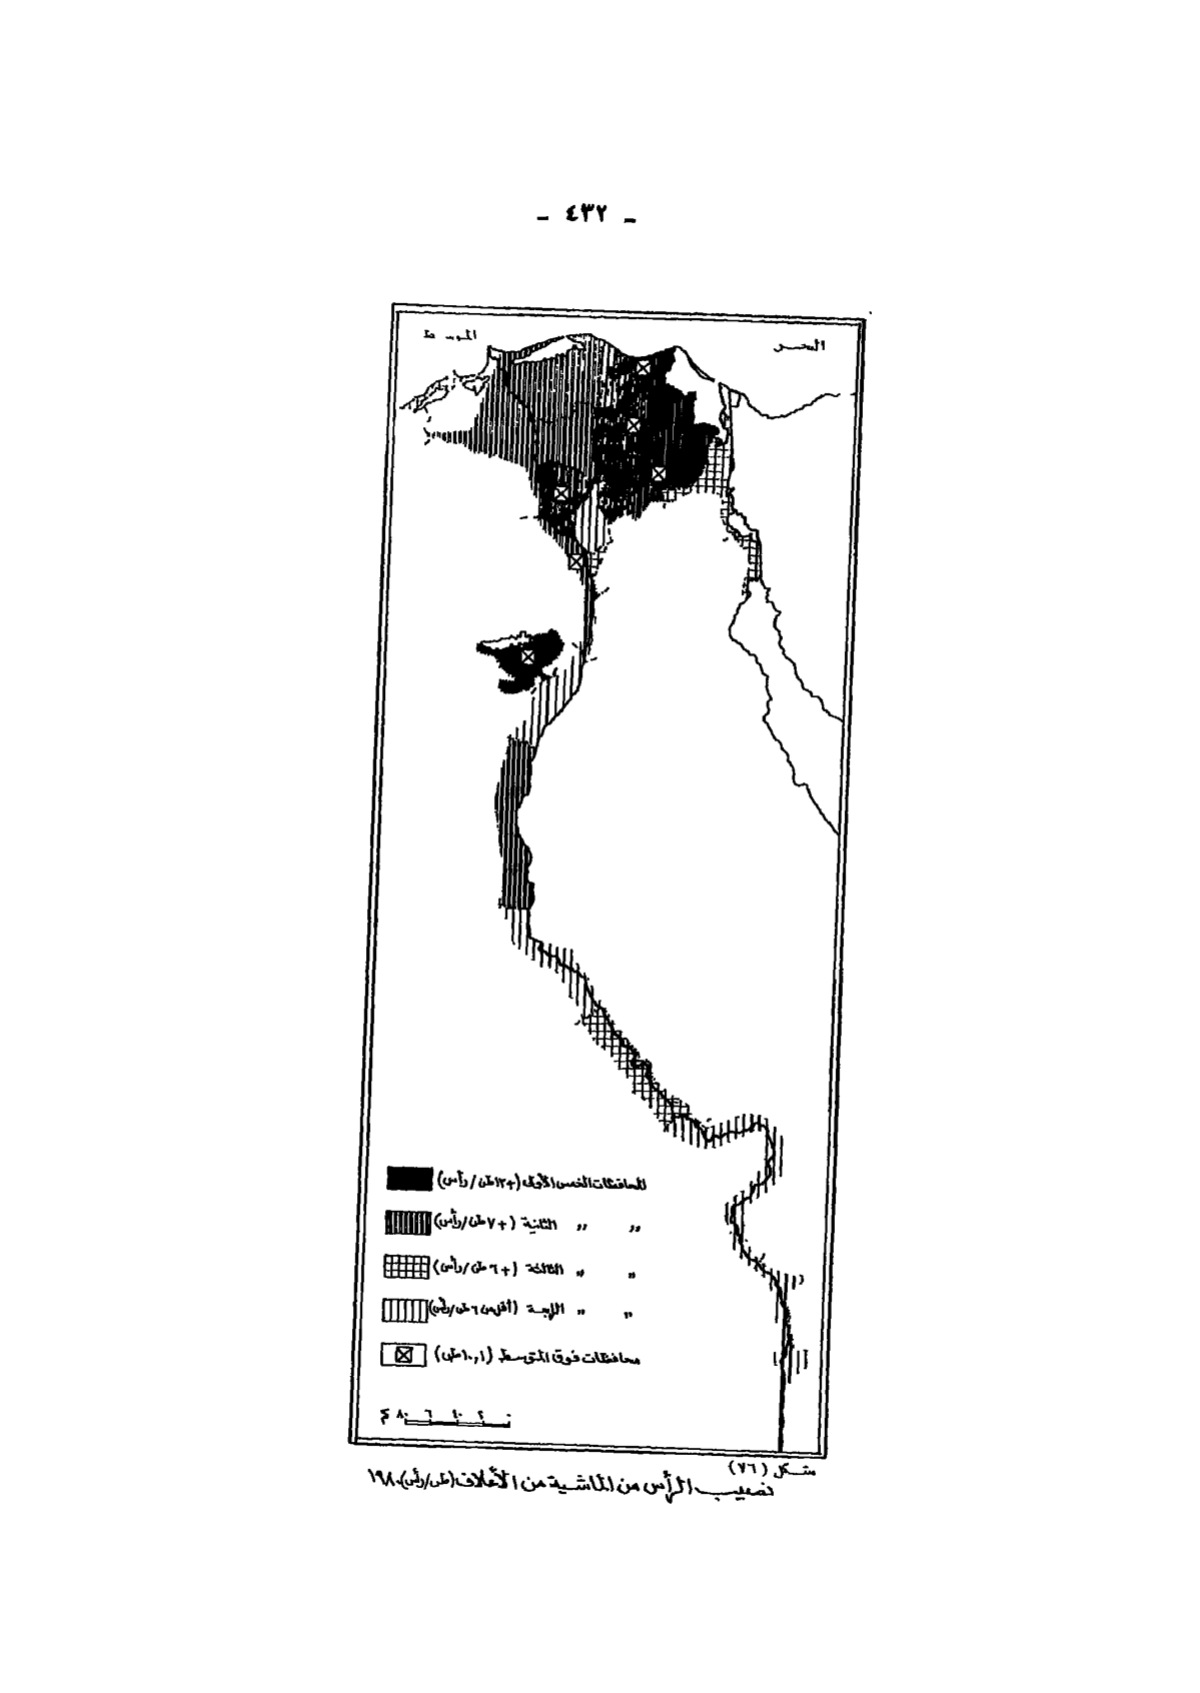 - ٤٣٢ -
البحـر المتوسط
المحافظات الخمس الأولى (+١٢ طن/رأس)
〃 〃 الثانية (+٧ طن/رأس)
〃 〃 الثالثة (+٦ طن/رأس)
〃 〃 الرابعة (أقل من ٦ طن/رأس)
محافظات فوق المتوسط (١٠,١ طن)
شكل (٧٦)
نصيب الرأس من الماشية من الأعلاف (طن/رأس) ١٩٨٠